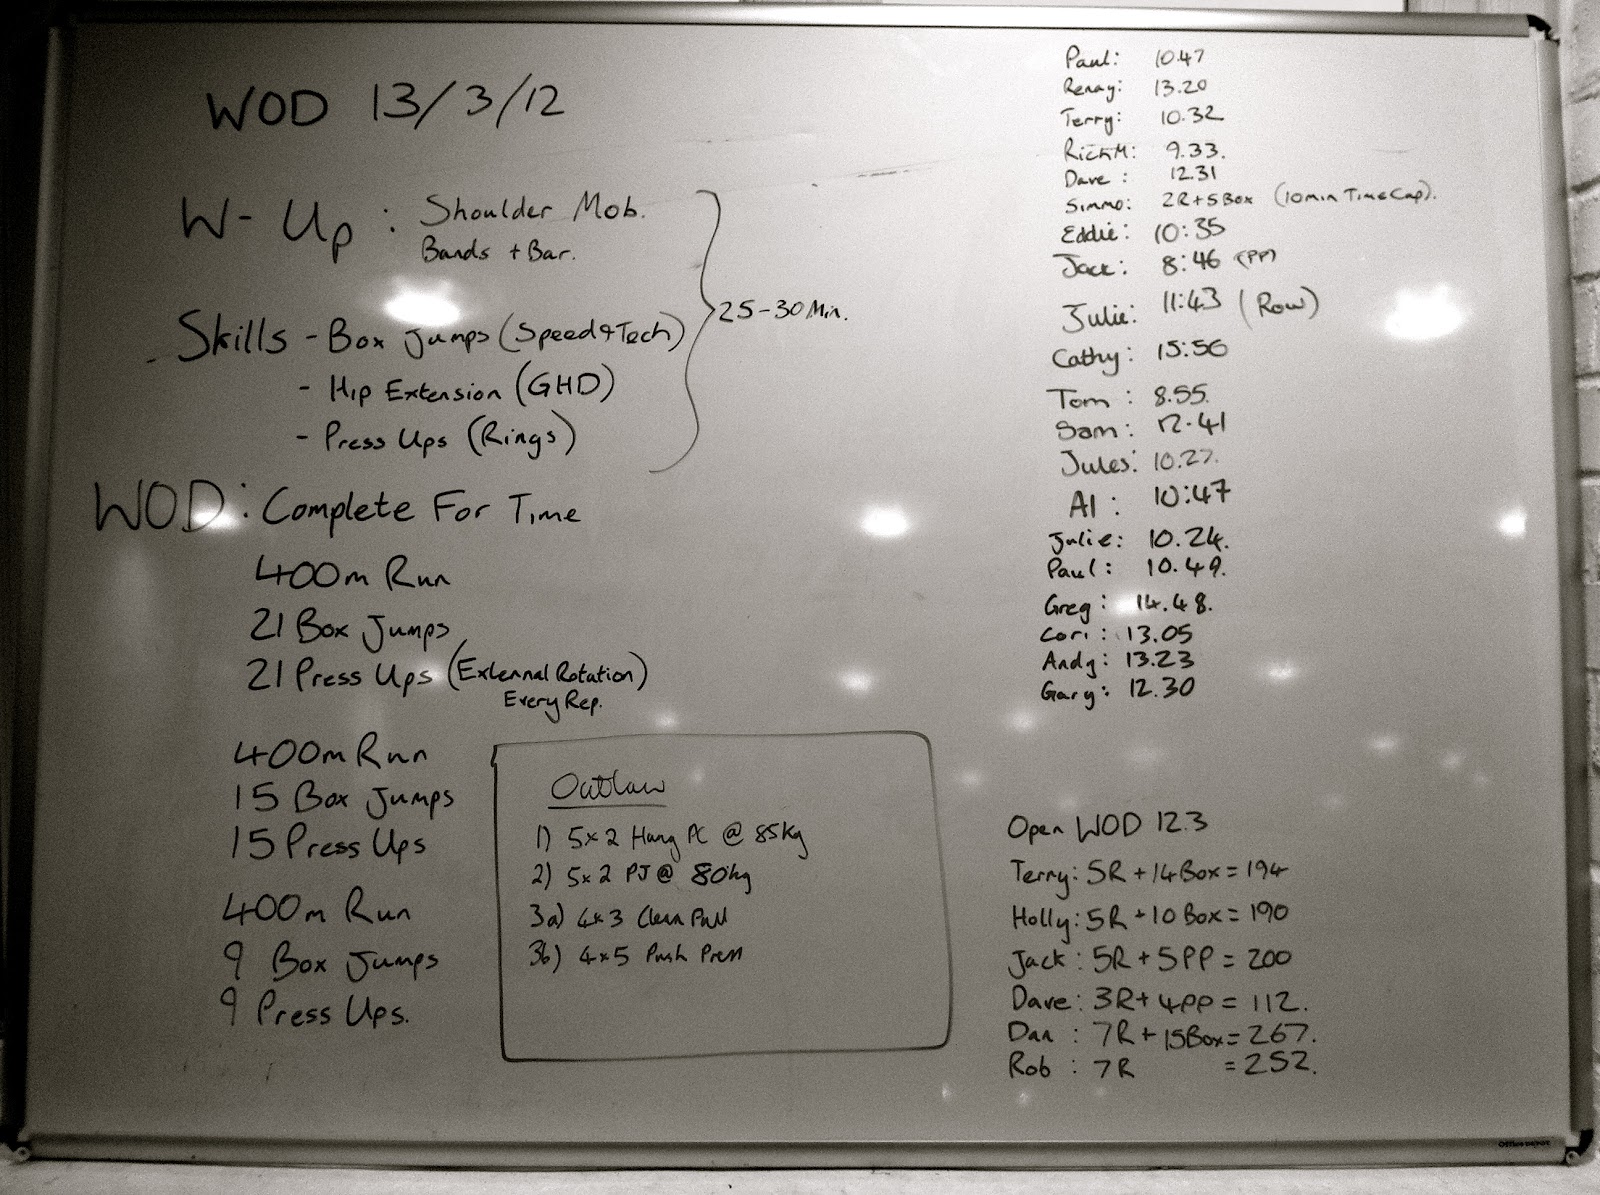 WOD 13/3/12
W-Up : Shoulder Mob.
Bands + Bar.
25-30 Min.
Skills - Box Jumps (Speed & Tech)
- Hip Extension (GHD)
- Press Ups (Rings)
WOD: Complete For Time
400m Run
21 Box Jumps
21 Press Ups (External Rotation)
Every Rep.
400m Run
15 Box Jumps
15 Press Ups
400m Run
9 Box Jumps
9 Press Ups.
Outlaw
1) 5x2 Hang PC @ 85kg
2) 5x2 PJ @ 80kg
3a) 4x3 Clean Pull
3b) 4x5 Push Press
Paul: 10.47
Renay: 13.20
Terry: 10.32
Rich M: 9.33.
Dave : 12.31
Simmo: 2R+5Box (10min Time Cap).
Eddie: 10:35
Jack: 8:46 (PP)
Julie: 11:43 (Row)
Cathy: 15:56
Tom : 8.55.
Sam : 12.41
Jules: 10.27.
Al : 10:47
Julie: 10.24.
Paul: 10.49.
Greg: 14.48.
Cori: 13.05
Andy: 13.23
Gary: 12.30
Open WOD 12.3
Terry: 5R + 14 Box = 194
Holly: 5R + 10 Box = 190
Jack: 5R + 5PP = 200
Dave: 3R + 4PP = 112.
Dan : 7R + 15Box = 267.
Rob : 7R = 252.
Office Depot